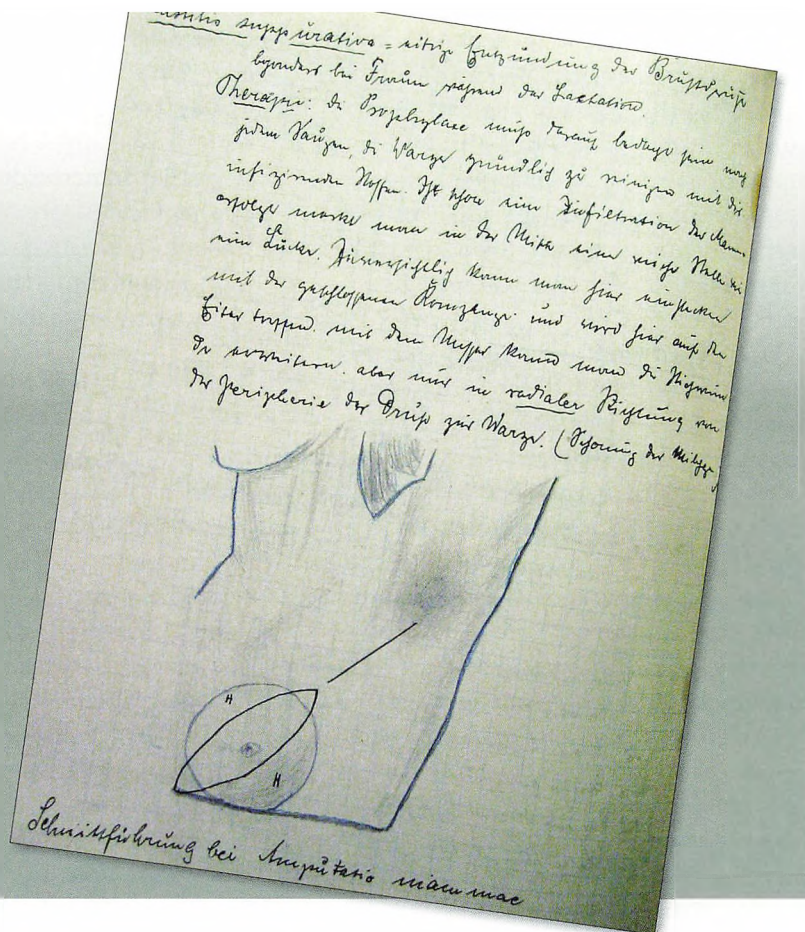 suppurativa = eitrige Entzündung der Brustdrüse
besonders bei Frauen während der Lactation.
Therapie: die Prophylaxe muss darauf bedacht sein nach
jedem Säugen, die Warze gründlich zu reinigen mit des
infizirenden Stoffen. Ist schon eine Infiltration der Mamma
erfolgt merkt man in der Mitte eine weiche Stelle wie
eine Lücke. Zuversichtlich kann man hier einstechen
mit der geschlossenen Kornzange und wird hier auf den
Eiter treffen. mit dem Messer kann man die Stichwun
de erweitern. aber nur in radialer Richtung von
der Peripherie der Drüse zur Warze. (Schonung der
H
H
Schnittführung bei Amputatio mammae